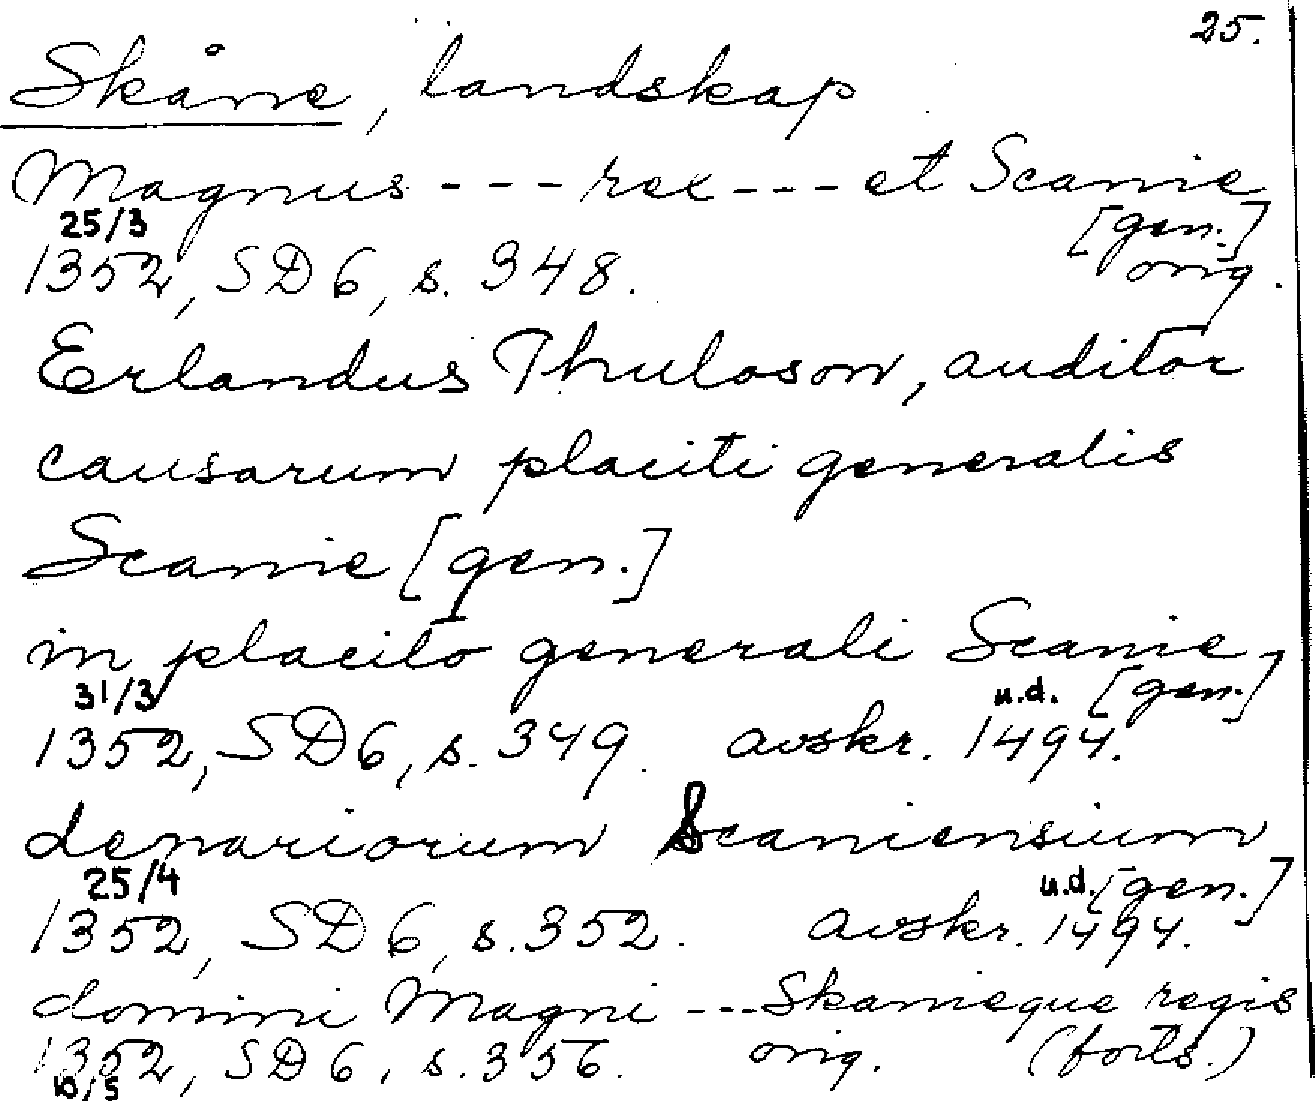 25.
Skåne, landskap
Magnus - - - rex - - - et Scanie
25/3 [gen.]
1352, SD 6, s. 348. orig.
Erlandus Thuloson, auditor
causarum placiti generalis
Scanie [gen.]
in placito generali Scanie
31/3 u.d. [gen.]
1352, SD 6, s. 349. avskr. 1494.
denariorum Scaniensium
25/4 u.d. [gen.]
1352, SD 6, s. 352. avskr. 1494.
domini Magni - - - Skanieque regis
1352, SD 6, s. 356. orig. (forts.)
10/5